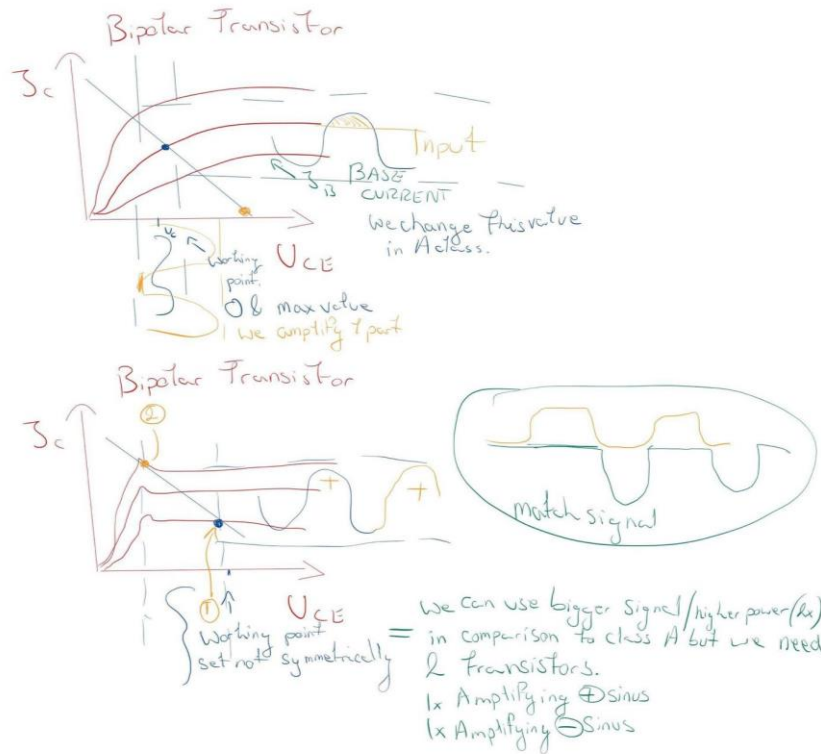 Bipolar Transistor
Ʒc
Input
ƷB BASE
CURRENT
we change this value
in A class.
Uc
working
point.
UCE
0 & max value
we amplify 1 part
Bipolar Transistor
2
Ʒc
+
+
match signal
1
UCE
working point
set not symmetrically
= we can use bigger signal/higher power(2x)
in comparison to class A but we need
2 transistors.
1x Amplifying + sinus
1x Amplifying - Sinus